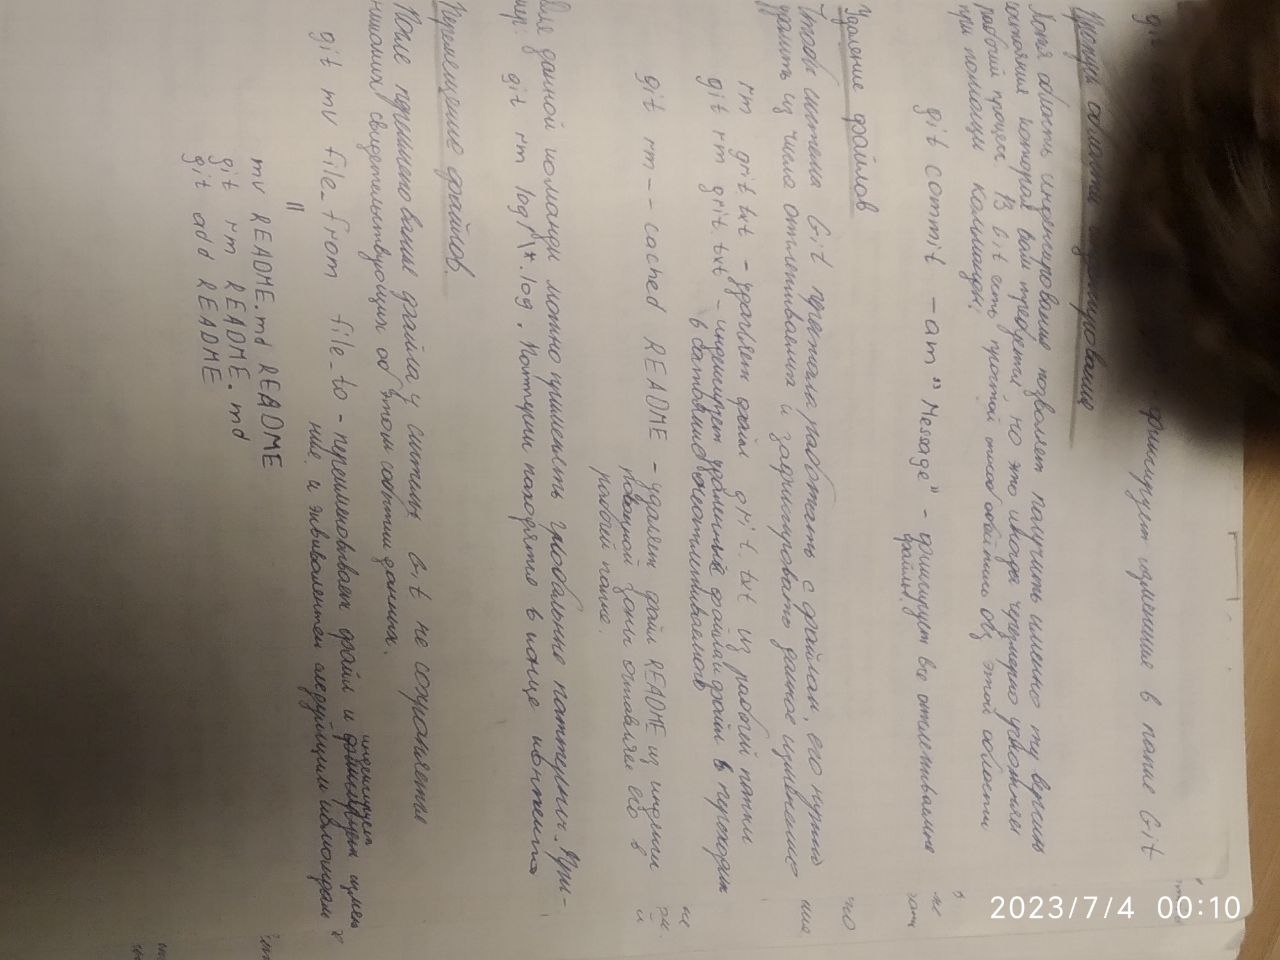 фиксирует изменение в папке Git
Пропуск области индексирования
Хотя область индексирования позволяет получить именно ту версию
состояния которая вам требуется, но это иногда чрезмерно усложняет
рабочий процесс. В Git есть простой способ обойтись без этой области
при помощи команды:
git commit -am "Message" - фиксирует все отслеживаемые
файлы!
Удаление файлов
Чтобы система Git перестала работать с файлом, его нужно
удалить из числа отслеживаемых и зафиксировать данное изменение
rm grit.txt - удаляет файл grit.txt из рабочей папки
git rm grit.txt - индексирует удаленный файл и файл переходит
в состояние неотслеживаемого
git rm --cached README - удаляет файл README из индекси
рованной зоны оставляя его в
рабочей папке.
Для данной команды можно применять глобальные паттерны. При-
мер: git rm log/\*.log. Паттерны находятся в конце конспекта
Перемещение файлов.
После переименования файла у системы Git не сохраняется
никаких свидетельствующих об этом событии данных.
индексирует
git mv file_from file_to - переименовывает файл и фиксирует измен
ние и эквивалентен следующим командам
=
mv README.md README
git rm README.md
git add README
2023/7/4 00:10